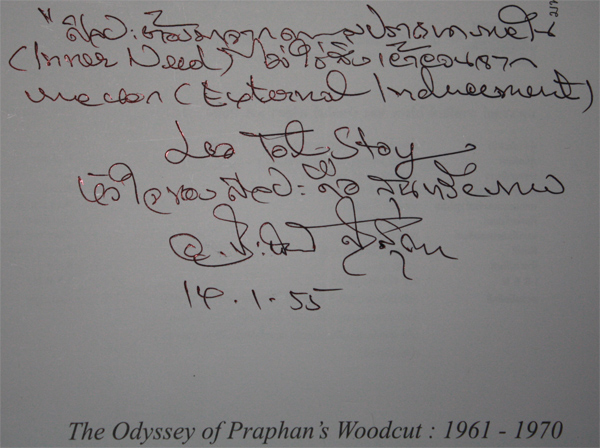 "ศิลปะต้องมาจากความปรารถนาภายใน
(Inner Need) ไม่ใช่สิ่งเร้าจาก
ภายนอก (External Inducement)
Leo Tol-Stoy
หัวใจของศิลปะ คือ สุนทรียภาพ
14.1.55
The Odyssey of Praphan's Woodcut : 1961 - 1970